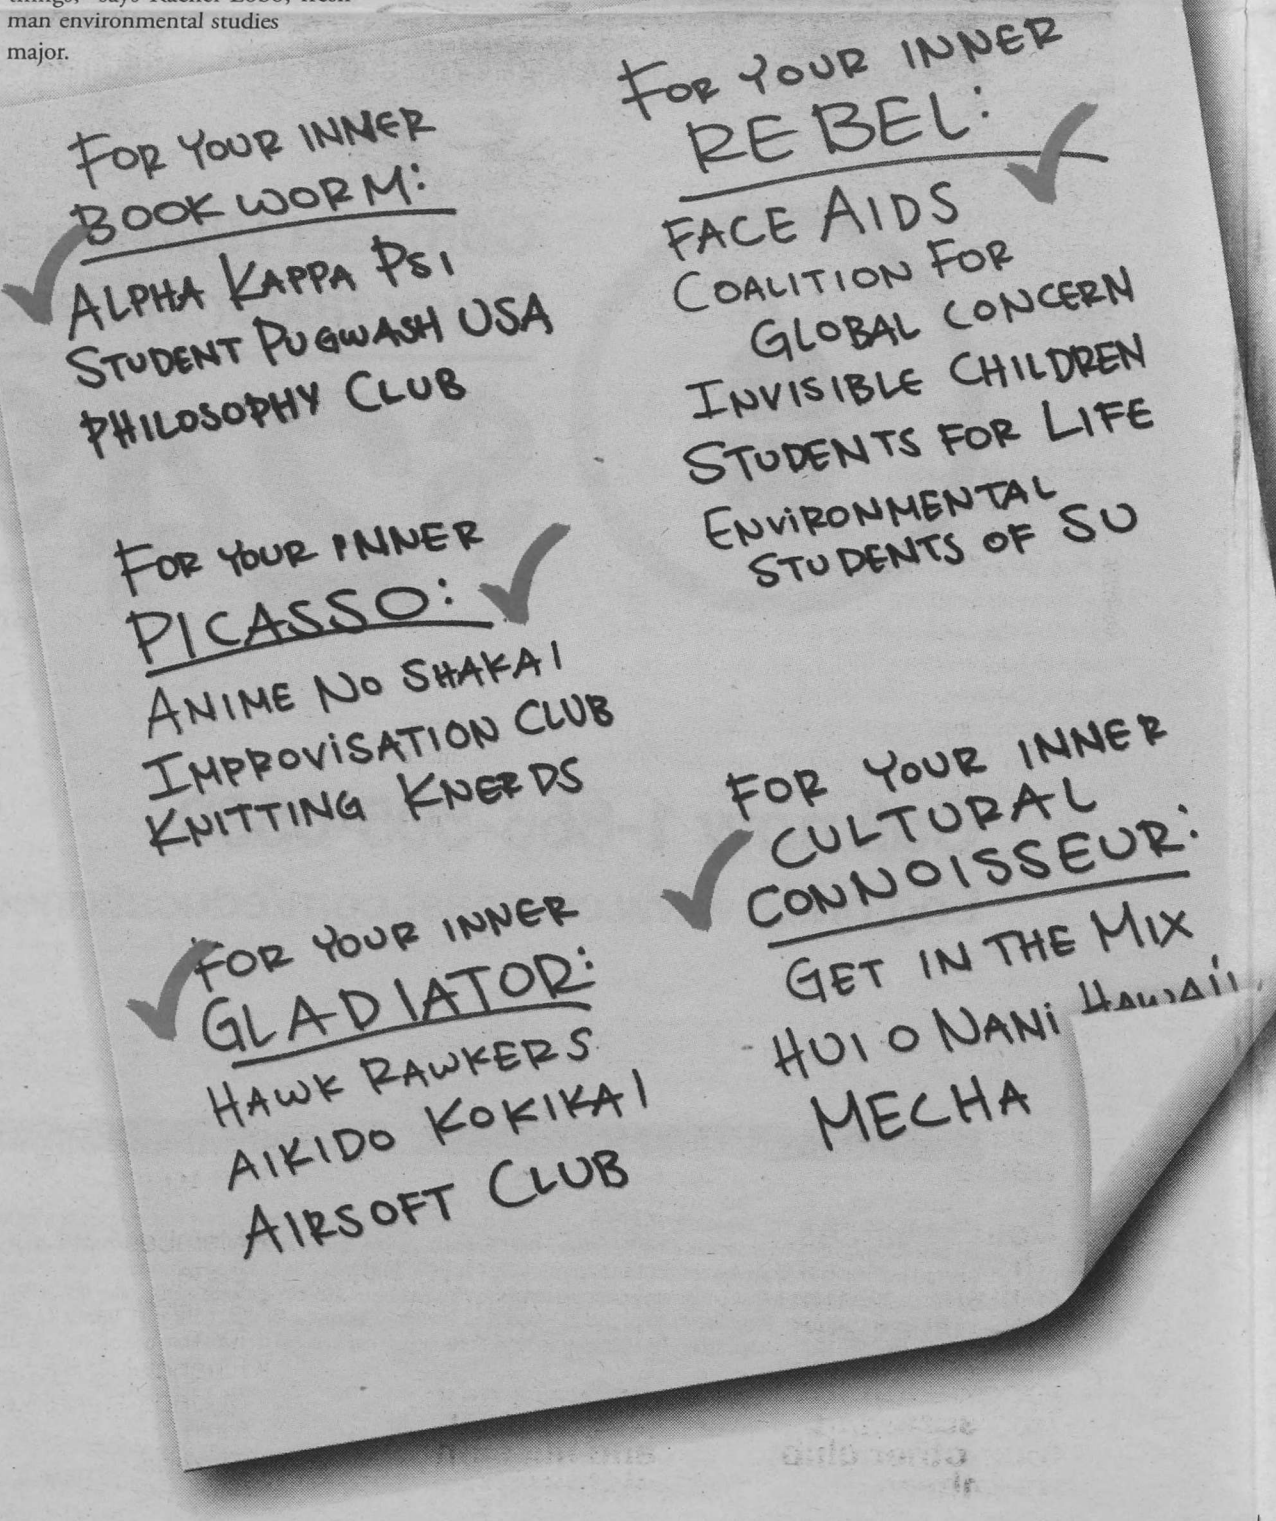 man environmental studies
major.
FOR YOUR INNER
BOOKWORM:
ALPHA KAPPA PSI
STUDENT PUGWASH USA
PHILOSOPHY CLUB
FOR YOUR INNER
PICASSO:
ANIME NO SHAKAI
IMPROViSATION CLUB
KNITTING KNERDS
FOR YOUR INNER
GLADIATOR:
HAWK RAWKERS
AIKIDO KOKIKAI
AIRSOFT CLUB
FOR YOUR INNER
REBEL:
FACE AIDS
COALITION FOR
GLOBAL CONCERN
INVISIBLE CHILDREN
STUDENTS FOR LIFE
ENViRONMENTAL
STUDENTS OF SU
FOR YOUR INNER
CULTURAL
CONNOISSEUR:
GET IN THE MIX
HUI O NANi HAWAI'I
MECHA